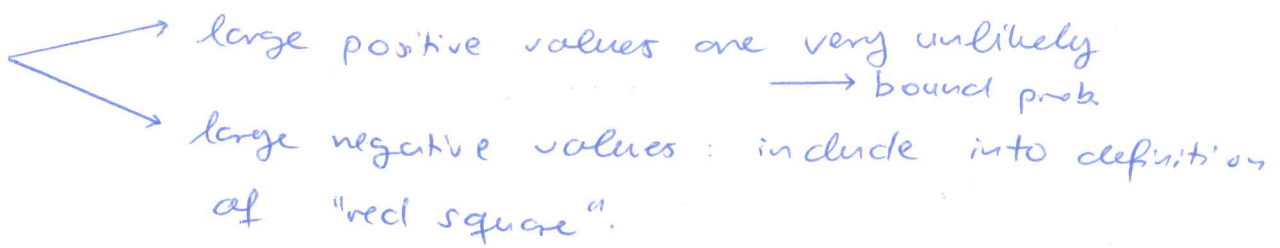 large positive values are very unlikely
→ bound prob.
large negative values : include into definition
of "red square".